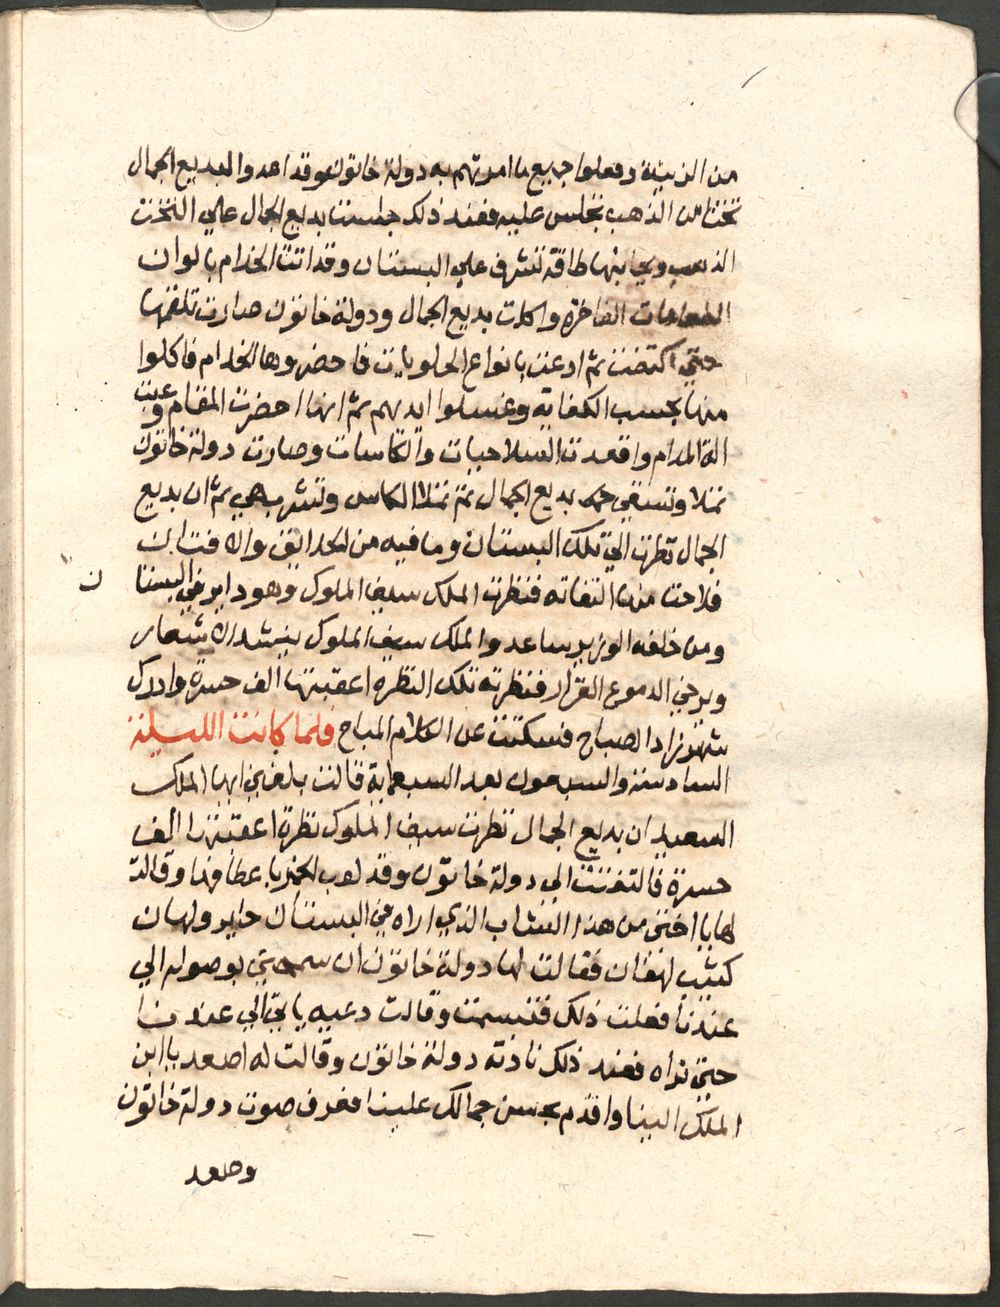 من الزينة وفعلوا جميع ما امرتهم به دولة خاتون وقد اهدوا لبديع الجمال
تختا من الذهب تجلس عليه فعند ذلك جلست بديع الجمال علي التخت
الذهب وبجانبها طاقة تشرف علي البستان وقد اتت الخدام بالوان
الطعامات الفاخرة واكلت بديع الجمال ودولة خاتون صارت تلقمها
حتي اكتفت ثم ادعت بانواع الحلويات فاحضروها الخدام فاكلوا
منها بحسب الكفاية وغسلوا ايديهم ثم انها احضرت المقام وعبت
الة المدام واقعدت السلاحيات والكاسات وصارت دولة خاتون
تملا وتسقي بديع الجمال ثم تملا الكاس وتشرب هي ثم ان بديع
الجمال نظرت الي تلك البستان وما فيه من الحدايق والافتان
فلاحت منها التفاته فنظرت الملك سيف الملوك وهو داير في البستا
ن
ومن خلفه الوزير ساعد والملك سيف الملوك ينشد الاشعار
ويرخي الدموع الغزار فنظرته تلك النظرة اعقبتها الف حسرة وادرك
شهرزاد الصباح فسكتت عن الكلام المباح فلما كانت الليلة
السادسة والسبعون بعد السبعماية قالت بلغني ايها الملك
السعيد ان بديع الجمال نظرت سيف الملوك نظرة اعقبتها الف
حسرة فالتفتت الي دولة خاتون وقد لعب الخمر باعطافها وقالت
لها يا اختي من هذا الشاب الذي اراه في البستان حاير ولهان
كئيب لهفان فقالت لها دولة خاتون ان سمحتي بوصوله الي
عندنا فعلت ذلك فتبسمت وقالت دعيه ياتي الي عندنا
حتي نراه فعند ذلك نادته دولة خاتون وقالت له اصعد يا ابن
الملك الينا واقدم بحسن جمالك علينا فعرف صوت دولة خاتون
وصعد